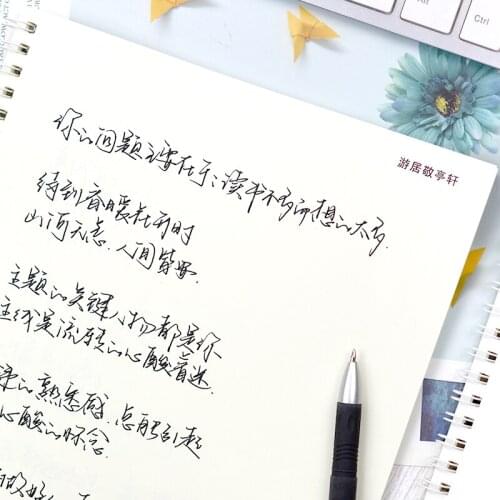 游居敬亭轩
你的问题主要在于：读书不多而想的太多.
待到春暖花开时
山河无恙.人间皆安.
主题的关键人物都是你
主线是流转的心酸着迷.
的熟悉感.总能引起
心酸的怀念.
做好
Alt
Ctrl